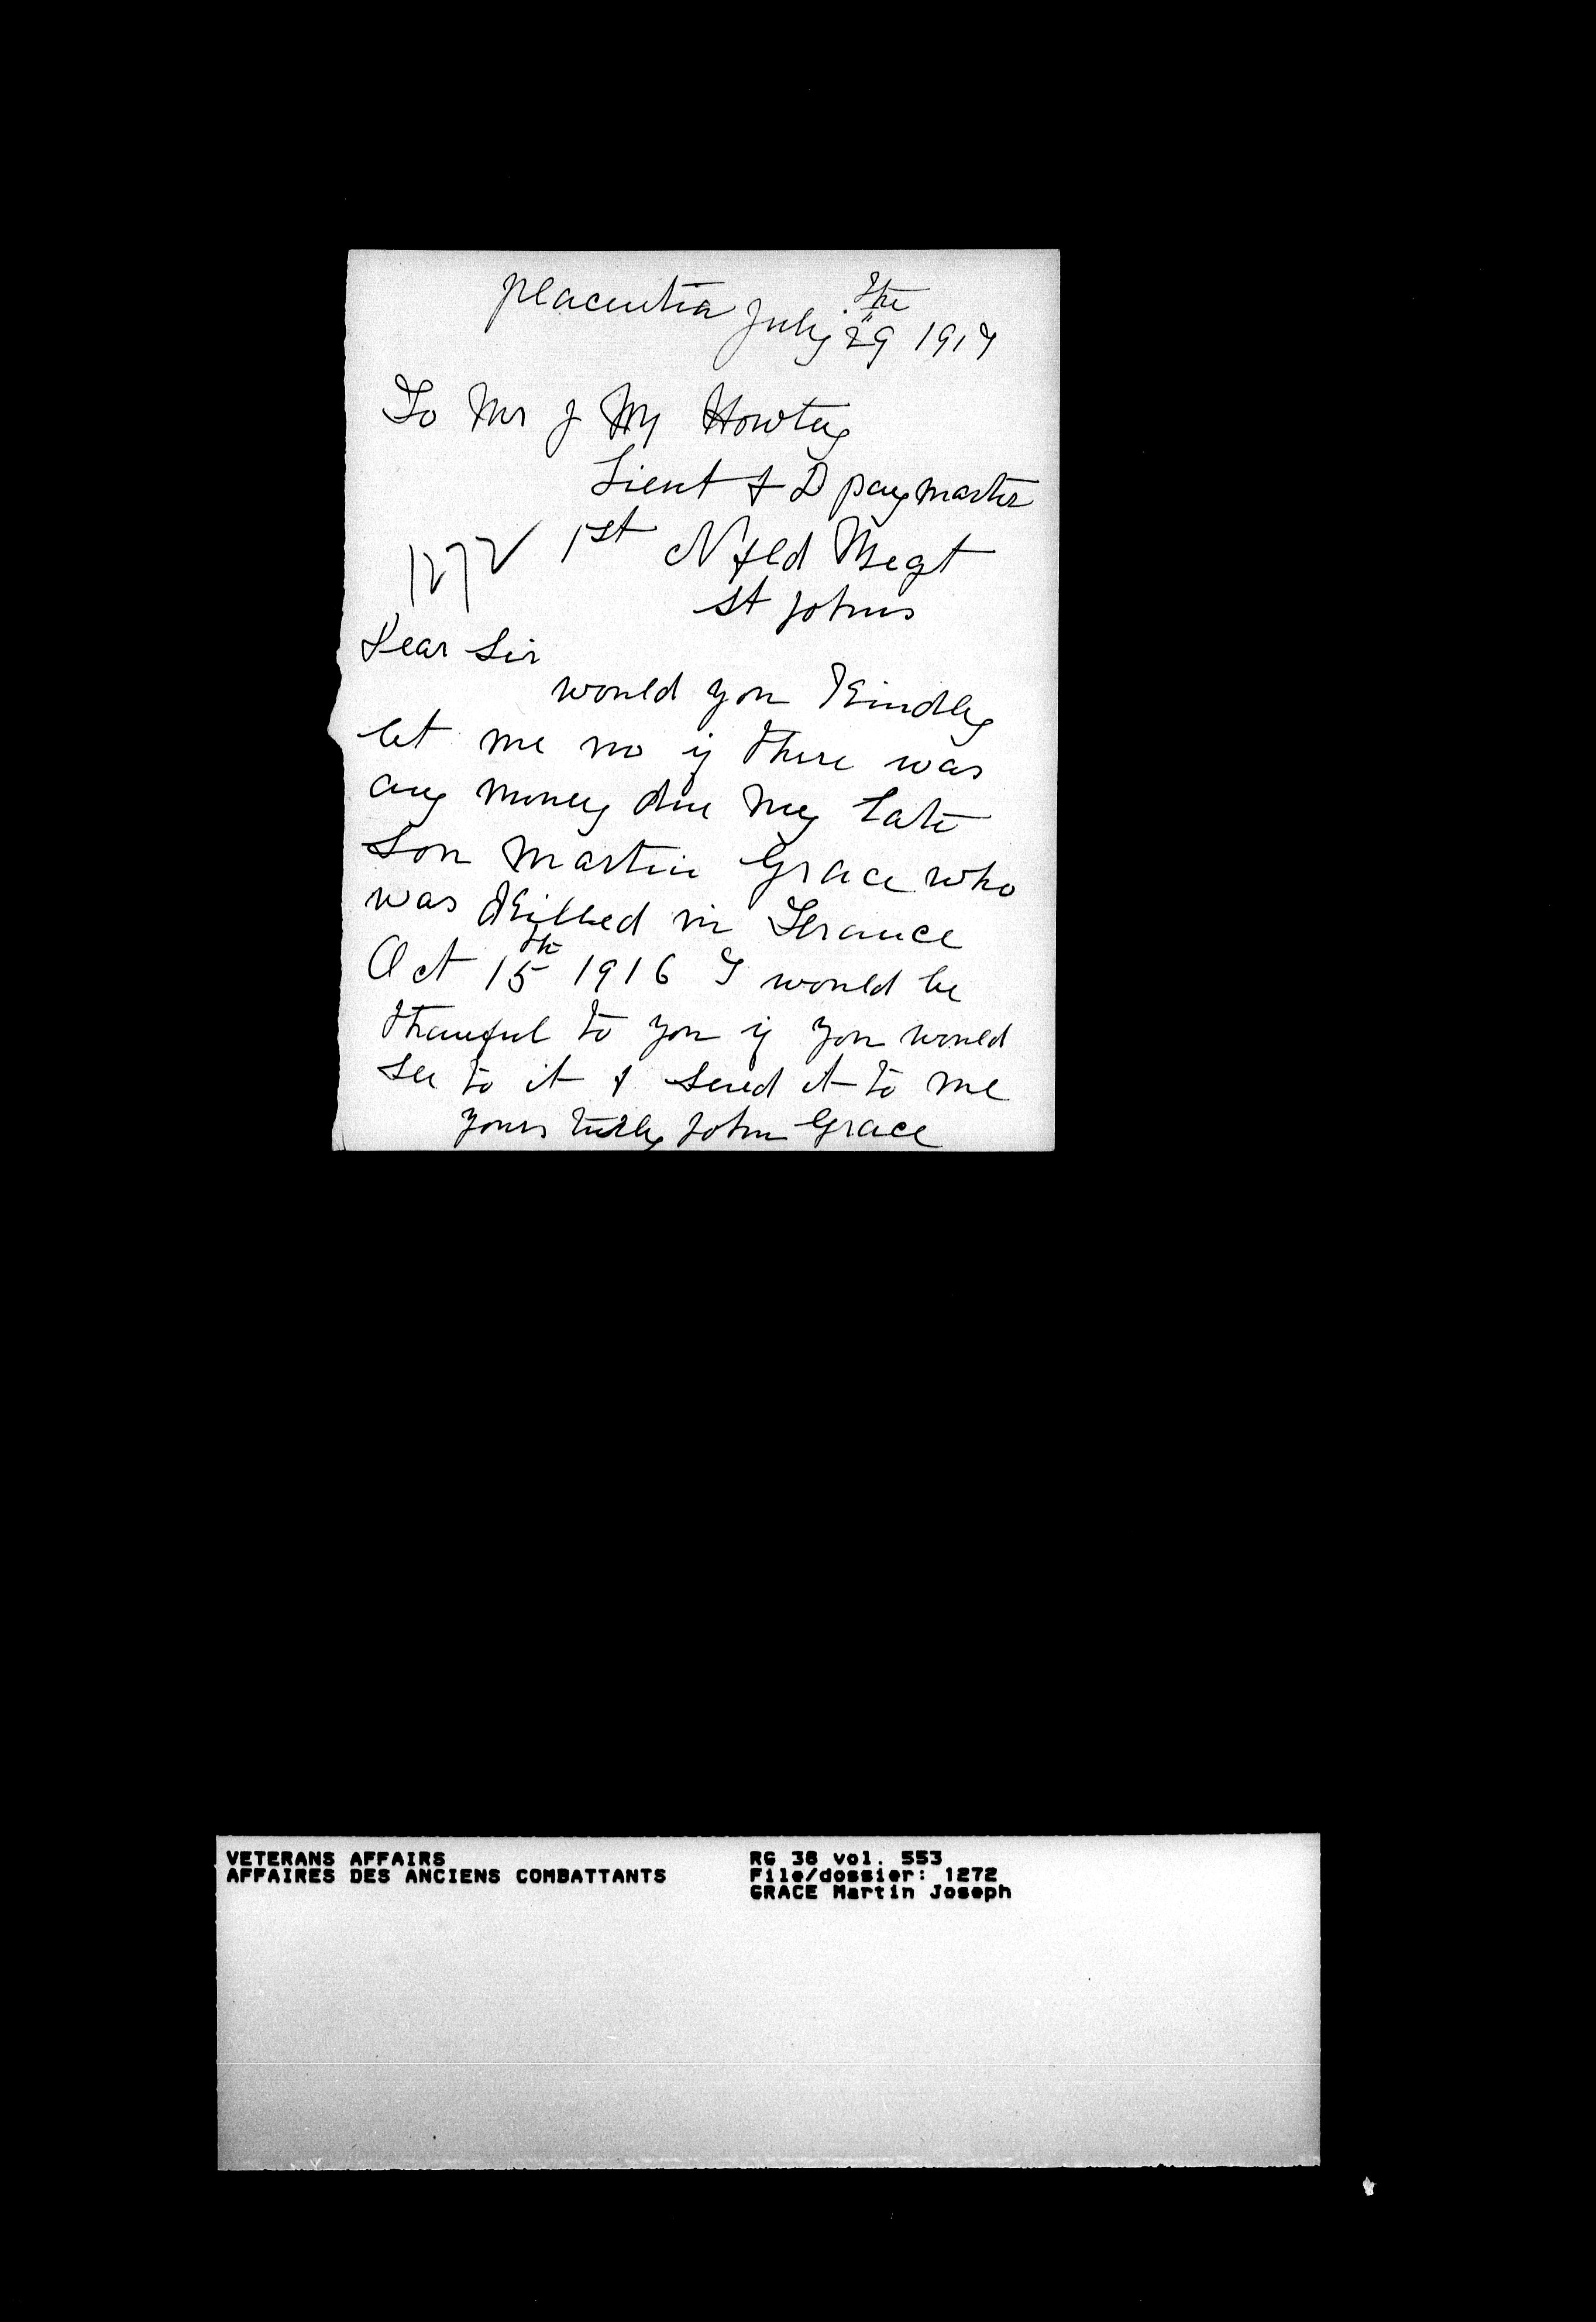 placentia July 29the 1917
To Mr J M Howley
Lieut & D paymaster
1st Nfld Regt
1272
St Johns
Dear Sir
would you Kindly
let me no if there was
any money due my late
Son Martin Grace who
was Killed in France
Oct 15th 1916 I would be
thanful to you if you would
see to it & send it to me
yours truly John Grace
VETERANS AFFAIRS
AFFAIRES DES ANCIENS COMBATTANTS
RG 38 vol. 553
File/dossier: 1272
GRACE Martin Joseph